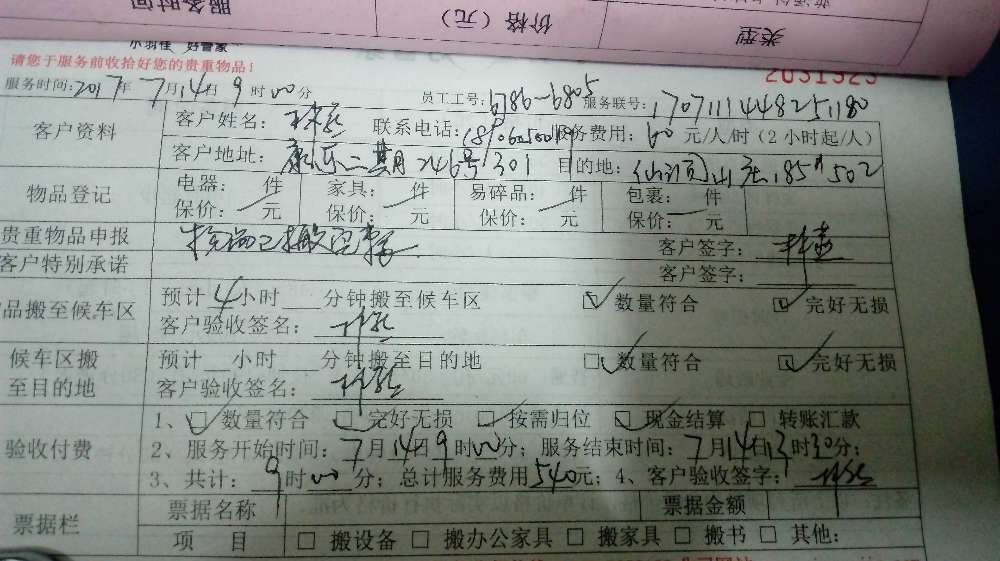 服务时间 价格（元） 类型
小羽佳 好管家
请您于服务前收拾好您的贵重物品！ 2031323
服务时间：2017年7月14日9时00分 员工工号：6786-6805 服务联号：170711144825180
客户资料 客户姓名： 联系电话： 服务费用：60元/人/时（2小时起/人）
客户地址：康乐二期246号301 目的地：仙阁山庄185# 502
物品登记 电器： 件 家具： 件 易碎品： 件 包裹： 件
保价： 元 保价： 元 保价： 元 保价： 元
贵重物品申报 客户签字：
客户特别承诺 客户签字：
品搬至候车区 预计4小时 分钟搬至候车区 数量符合 完好无损
客户验收签名：
候车区搬至目的地 预计 小时 分钟搬至目的地 数量符合 完好无损
客户验收签名：
验收付费 1、数量符合 完好无损 按需归位 现金结算 转账汇款
2、服务开始时间：7月14日9时00分；服务结束时间：7月14日13时30分；
3、共计：9时00分；总计服务费用540元；4、客户验收签字：
票据栏 票据名称 票据金额
项目 搬设备 搬办公家具 搬家具 搬书 其他：